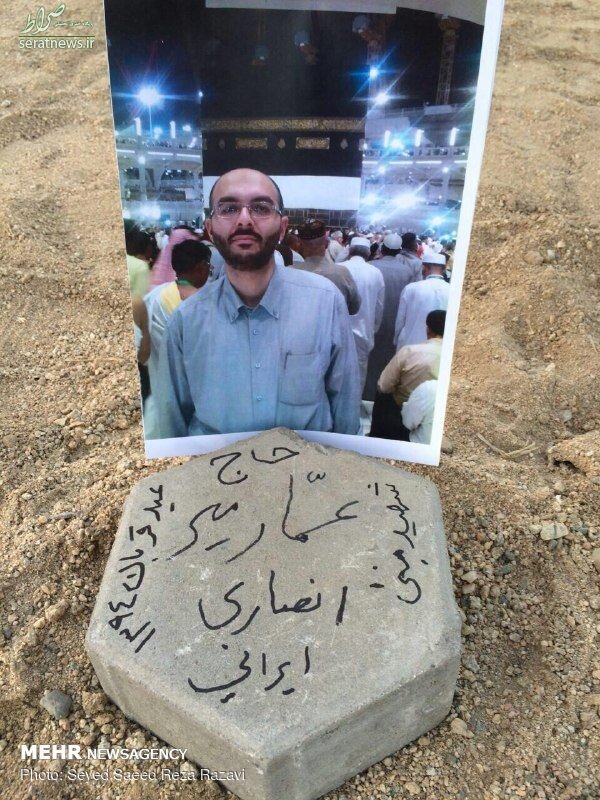 صراط
seratnews.ir
حاج
عمّار میر
انصاری
ایرانی
شهید منیٰ
عید قربان ۹۴
MEHR NEWSAGENCY
Photo: Seyed Saeed Reza Razavi